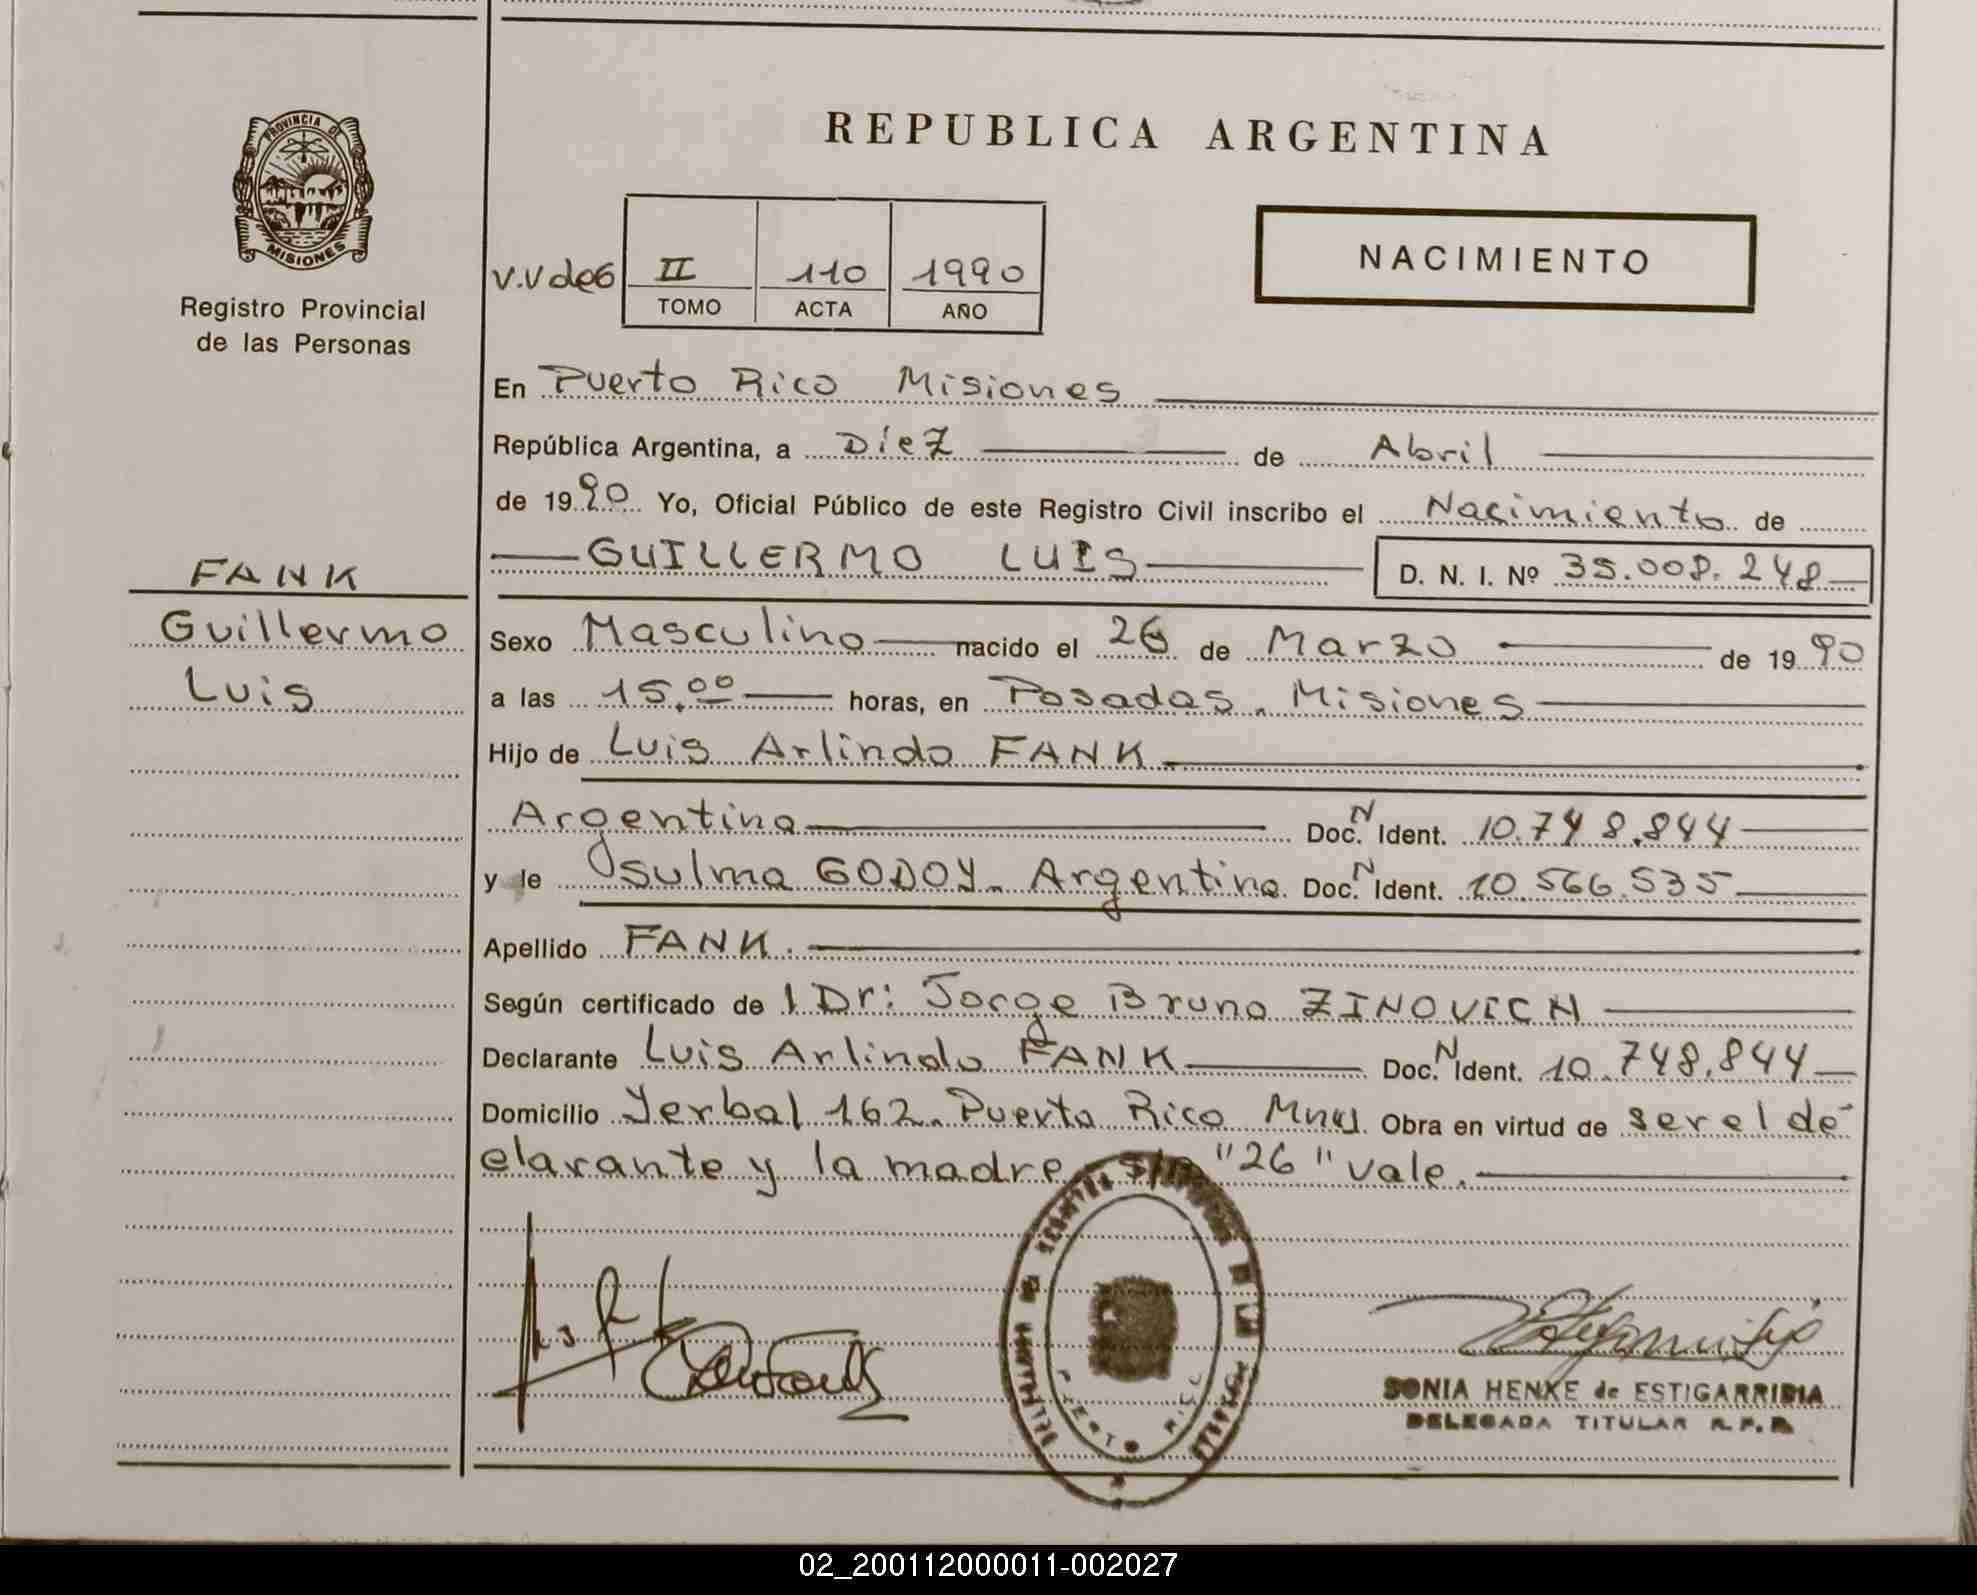 REPUBLICA ARGENTINA
PROVINCIA DE
MISIONES
Registro Provincial
de las Personas
NACIMIENTO
II 110 1990
TOMO ACTA AÑO
En Puerto Rico Misiones
República Argentina, a Diez de Abril
de 1990 Yo, Oficial Público de este Registro Civil inscribo el Nacimiento de
GUILLERMO LUIS D. N. I. Nº 35.008.248
FANK
Guillermo
Luis
Sexo Masculino nacido el 26 de Marzo de 1990
a las 15.00 horas, en Posadas. Misiones
Hijo de Luis Arlindo FANK
Argentina Doc. N Ident. 10.748.844
y le Osulma GODOY. Argentina. Doc. N Ident. 10.566.535
Apellido FANK.
Según certificado de l Dr: Jorge Bruno ZINOVICH
Declarante Luis Arlindo FANK Doc. N Ident. 10.748.844
Domicilio Yerbal 162. Puerto Rico Mnes. Obra en virtud de ser el de-
clarante y la madre s/r "26" vale.
SONIA HENKE de ESTIGARRIBIA
DELEGADA TITULAR R.P.P.
02_200112000011-002027